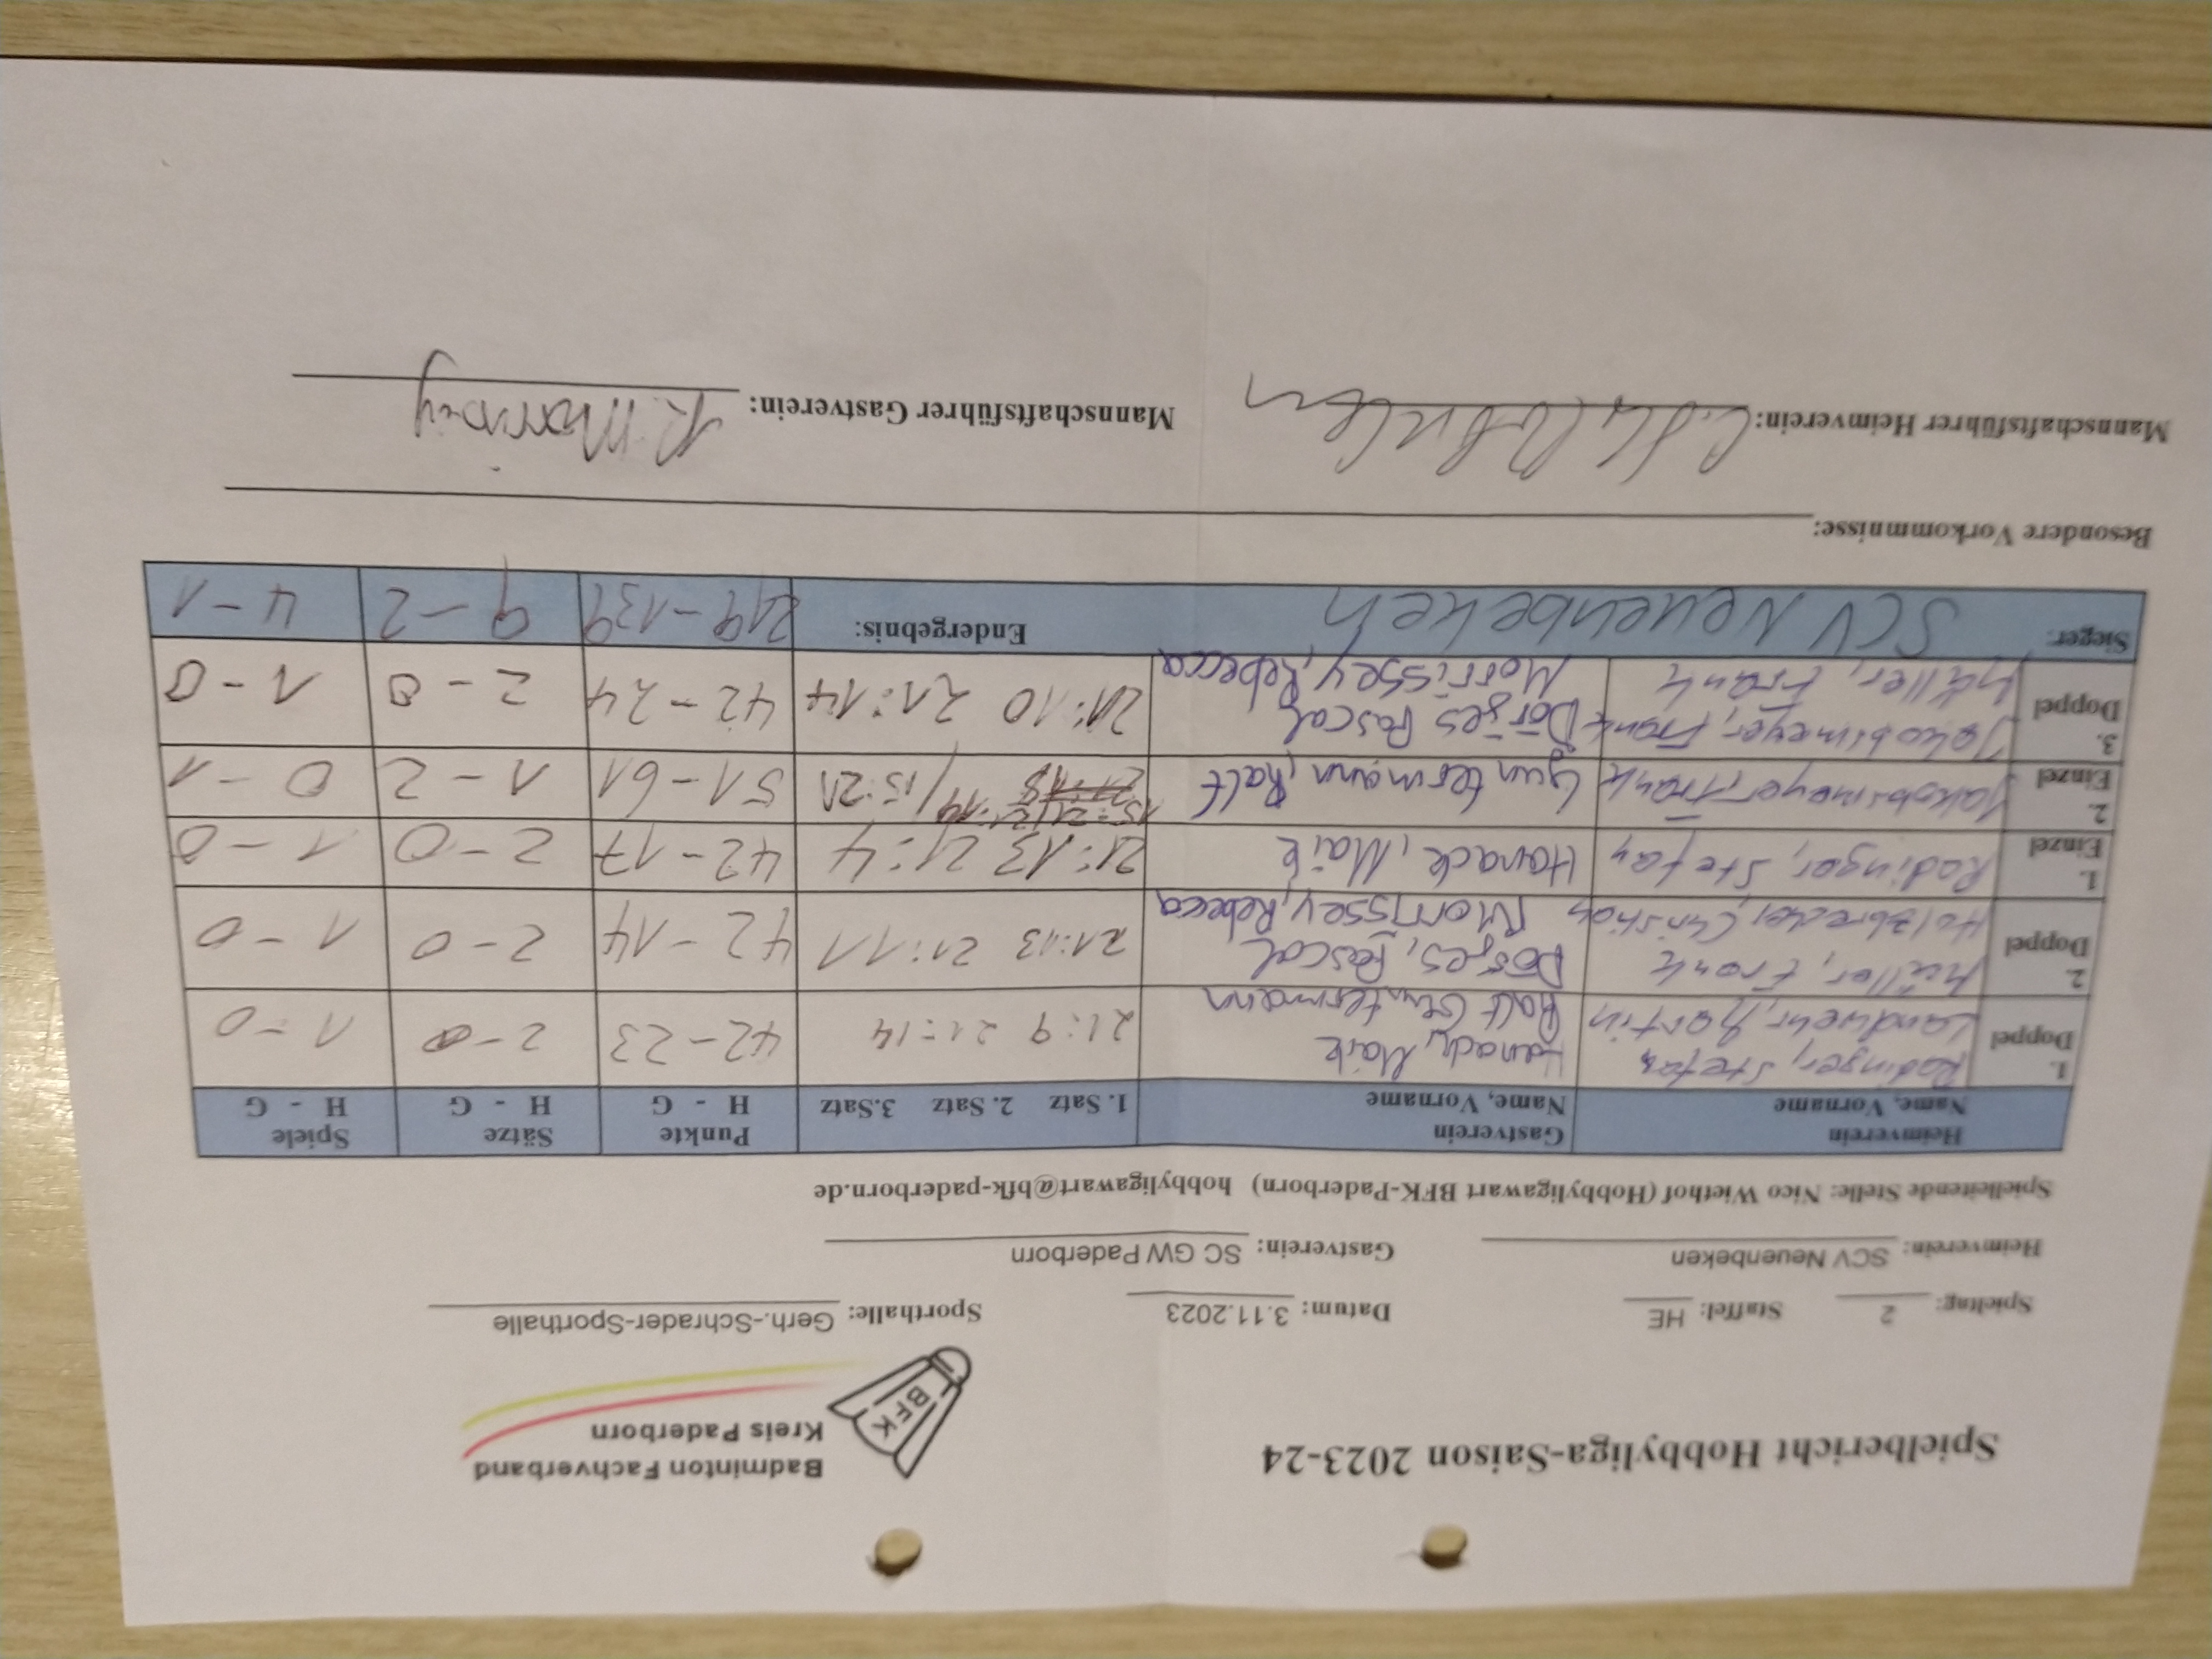 Spielbericht Hobbyliga-Saison 2023-24
BFK
Badminton Fachverband
Kreis Paderborn
Spieltag: 2 Staffel: HE Datum: 3.11.2023 Sporthalle: Gerh.-Schrader-Sporthalle
Heimverein: SCV Neuenbeken Gastverein: SC GW Paderborn
Spielleitende Stelle: Nico Wiethof (Hobbyligawart BFK-Paderborn) hobbyligawart@bfk-paderborn.de
Heimverein Gastverein Punkte Sätze Spiele
Name, Vorname Name, Vorname 1. Satz 2. Satz 3.Satz H - G H - G H - G
1. Doppel Rodinger, Stefan Hanack, Maik 21:9 21:14 42-23 2-0 1-0
Landwehr, Martin Ralf Guntermann
2. Doppel Müller, Frank Dörjes, Pascal 21:13 21:11 42-14 2-0 1-0
Holzbrecher, Christian Morrissey, Rebecca
1. Einzel Rodinger, Stefan Hanack, Maik 21:13 21:4 42-17 2-0 1-0
2. Einzel Jakobsmeyer, Frank Guntermann, Ralf 15:21/21:19/15:21 51-61 1-2 0-1
3. Doppel Jakobsmeyer, Frank Dörjes Pascal 21:10 21:14 42-24 2-0 1-0
Müller, Frank Morrissey, Rebecca
Sieger: SCV Neuenbeken Endergebnis: 219-139 9-2 4-1
Besondere Vorkommnisse:
Mannschaftsführer Heimverein: Mannschaftsführer Gastverein: R. Morrissey